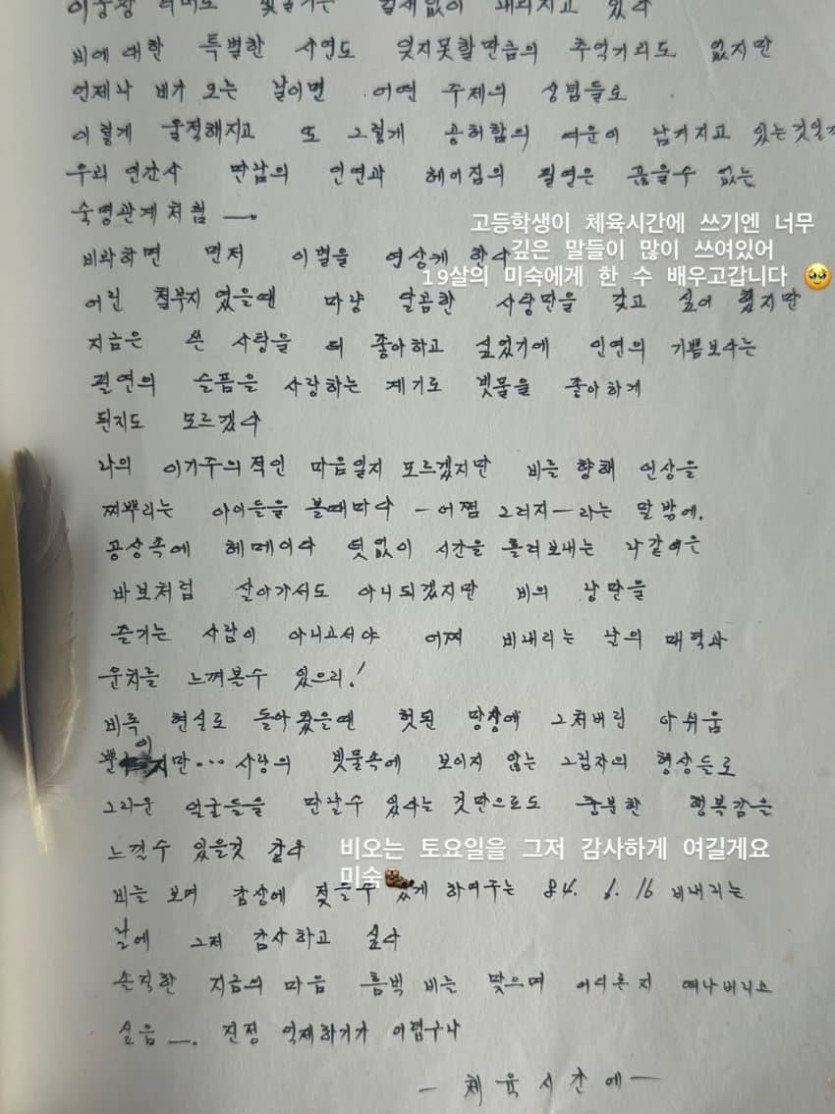 비에 대한 특별한 사연도 잊지못할만큼의 추억거리도 없지만
언제나 비가 오는 날이면 어떤 주제의 상념들로
이렇게 울적해지고 또 그렇게 공허함의 여운이 남겨지고 있는것일까
우리 인간사 만남의 인연과 헤어짐의 필연은 끊을수 없는
숙명관계처럼 —.
고등학생이 체육시간에 쓰기엔 너무
깊은 말들이 많이 쓰여있어
19살의 미숙에게 한 수 배우고갑니다 🥹
비와하면 먼저 이별을 연상케 한다
어린 철부지였을땐 마냥 달콤한 사랑만을 갖고 싶어 했지만
지금은 쓴 사랑을 더 좋아하고 싶었기에 인연의 기쁨보다는
필연의 슬픔을 사랑하는 계기로 빗물을 좋아하게
된지도 모르겠다
나의 이기주의적인 마음일지 모르겠지만 비를 향해 인상을
찌뿌리는 아이들을 볼때마다 —어쩜 그러지— 라는 말밖에.
공상속에 헤메이다 덧없이 시간을 흘려보내는 나같은
바보처럼 살아가서도 아니되겠지만 비의 낭만을
즐기는 사람이 아니고서야 어찌 비내리는 날의 매력과
운치를 느껴볼수 있으리!
비록 현실로 돌아왔을땐 헛된 망상에 그쳐버린 아쉬움
뿐이지만... 사랑의 빗물속에 보이지 않는 그림자의 형상들로
그리운 얼굴들을 만날수 있다는 것만으로도 충분한 행복감을
느낄수 있을것 같다
비오는 토요일을 그저 감사하게 여길게요
미숙🦦
비를 보며 감상에 젖을수 있게 하여주는 84. 6. 16 비내리는
날에 그저 감사하고 싶다
솔직한 지금의 마음 흠뻑 비를 맞으며 어디론지 떠나버리고
싶음 —. 진정 억제하기가 어렵구나
— 체육시간에 —